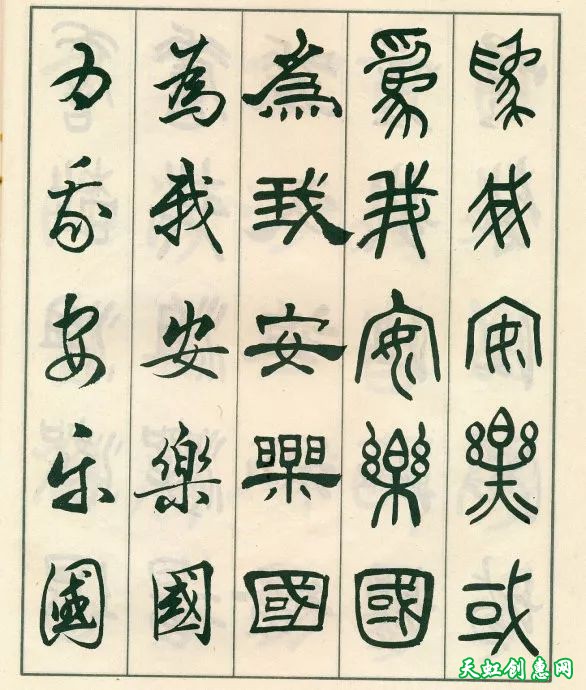 為我安樂或
為我安樂國
為我安樂國
為我安樂國
为我安乐國
天虹创意网